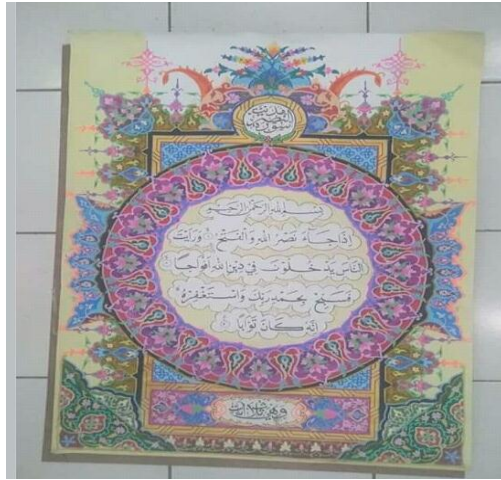 سورة النصر
بسم الله الرحمن الرحيم
إذا جاء نصر الله والفتح ورأيت
الناس يدخلون في دين الله أفواجا
فسبح بحمد ربك واستغفره
إنه كان توابا
وهي ثلاث آيات